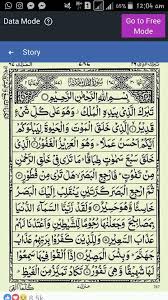 12:04 am
Data Mode
Go to Free Mode
Story
بِسْمِ اللهِ الرَّحْمٰنِ الرَّحِيْمِ
تَبٰرَكَ الَّذِيْ بِيَدِهِ الْمُلْكُ وَهُوَ عَلٰى كُلِّ شَيْءٍ
قَدِيْرُ الَّذِيْ خَلَقَ الْمَوْتَ وَالْحَيٰوةَ لِيَبْلُوَكُمْ
اَيُّكُمْ اَحْسَنُ عَمَلًا وَهُوَ الْعَزِيْزُ الْغَفُوْرُ الَّذِيْ
خَلَقَ سَبْعَ سَمٰوٰتٍ طِبَاقًا مَا تَرٰى فِيْ خَلْقِ الرَّحْمٰنِ
مِنْ تَفٰوُتٍ فَارْجِعِ الْبَصَرَ هَلْ تَرٰى مِنْ فُطُوْرٍ
ثُمَّ ارْجِعِ الْبَصَرَ كَرَّتَيْنِ يَنْقَلِبْ اِلَيْكَ الْبَصَرُ
خَاسِئًا وَّهُوَ حَسِيْرٌ وَلَقَدْ زَيَّنَّا السَّمَاءَ الدُّنْيَا
بِمَصَابِيْحَ وَجَعَلْنٰهَا رُجُوْمًا لِّلشَّيٰطِيْنِ وَاَعْتَدْنَا لَهُمْ
عَذَابَ السَّعِيْرِ وَلِلَّذِيْنَ كَفَرُوْا بِرَبِّهِمْ عَذَابُ
جَهَنَّمَ وَبِئْسَ الْمَصِيْرُ اِذَا اُلْقُوْا فِيْهَا سَمِعُوْا لَهَا
شَهِيْقًا وَّهِيَ تَفُوْرُ تَكَادُ تَمَيَّزُ مِنَ الْغَيْظِ كُلَّمَا
8.5k